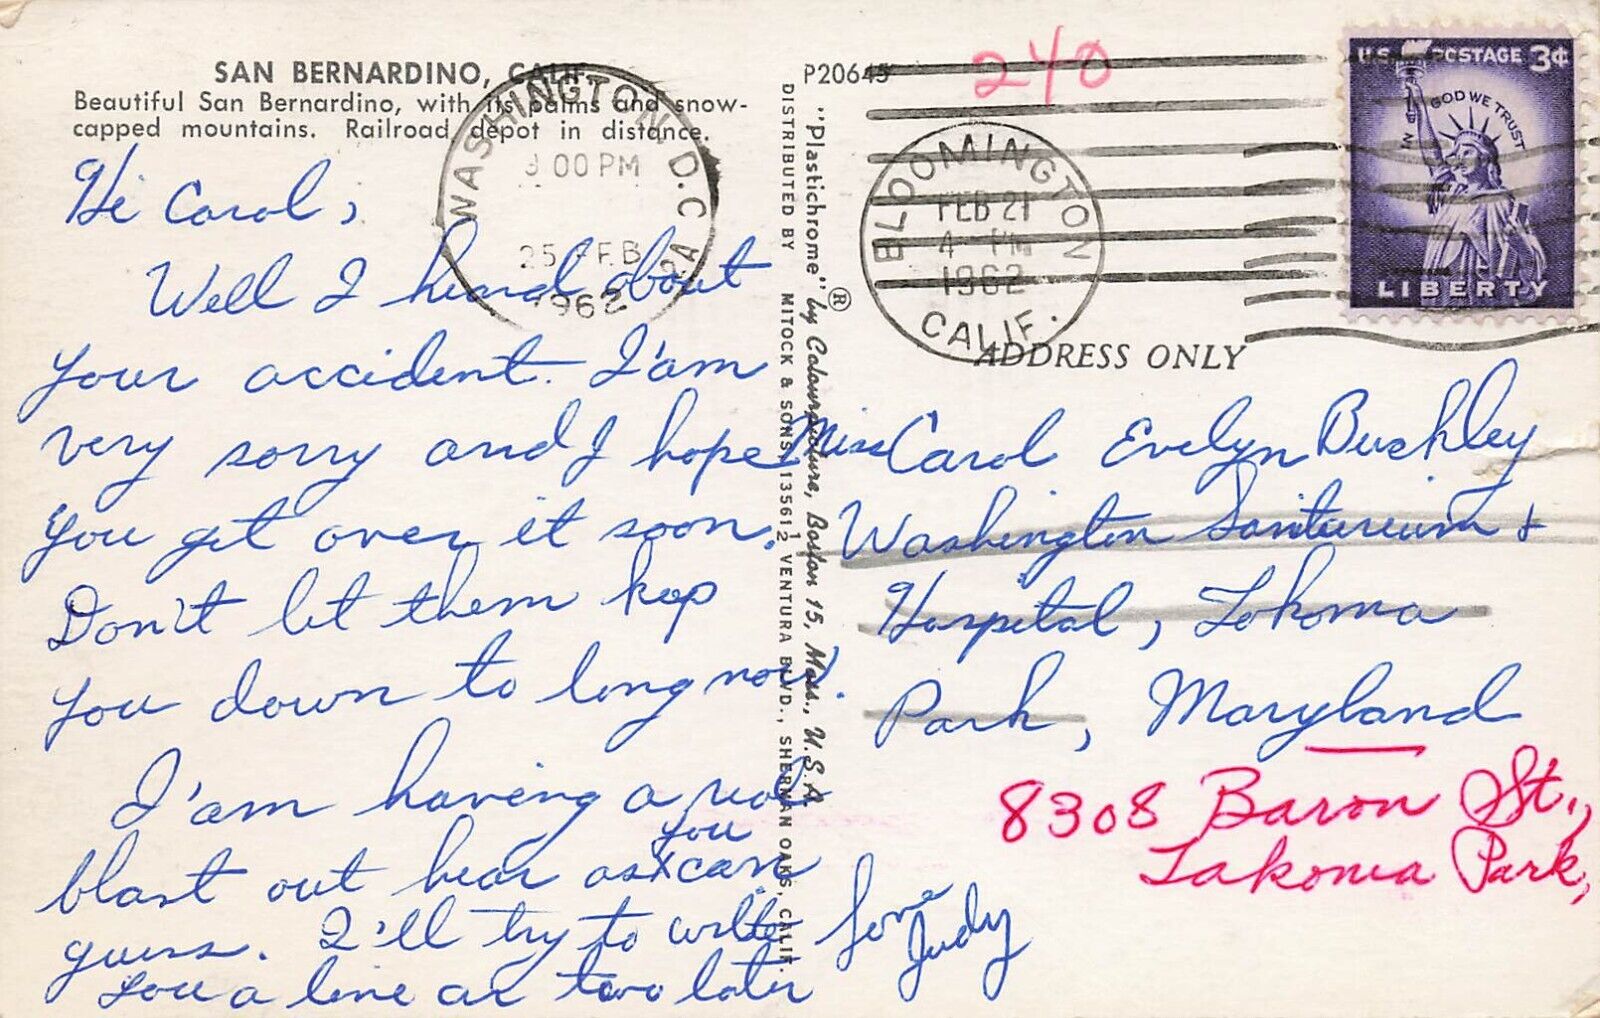 SAN BERNARDINO, CALIF.
Beautiful San Bernardino, with its palms and snow-
capped mountains. Railroad depot in distance.
Hi Carol,
Well I heard about
your accident. I'am
very sorry and I hope
you get over it soon.
Don't let them kep
you down to long now.
I'am having a real
blast out hear as you can
guess. I'll try to write
you a line ar two later
Love
Judy
WASHINGTON D.C.
9 00 PM
25 FEB
1962
P20645
"Plastichrome" ® by Colourpicture, Boston 15, Mass., U.S.A.
DISTRIBUTED BY MITOCK & SONS, 13561½ VENTURA BLVD., SHERMAN OAKS, CALIF.
240
BLOOMINGTON
FEB 21
4 PM
1962
CALIF.
U.S. POSTAGE 3¢
IN GOD WE TRUST
LIBERTY
ADDRESS ONLY
Miss Carol Evelyn Buckley
Washington Saniturium &
Hospital, Tokoma
Park, Maryland
8308 Baron St.,
Takoma Park,